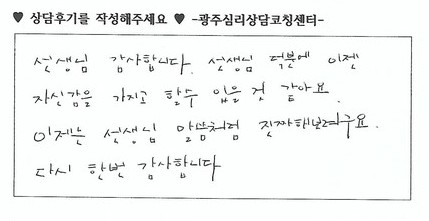 ♥ 상담후기를 작성해주세요 ♥ -광주심리상담코칭센터-
선생님 감사합니다. 선생님 덕분에 이젠
자신감을 가지고 할수 있을 것 같아요.
이제는 선생님 말씀처럼 진짜해보려구요.
다시 한번 감사합니다